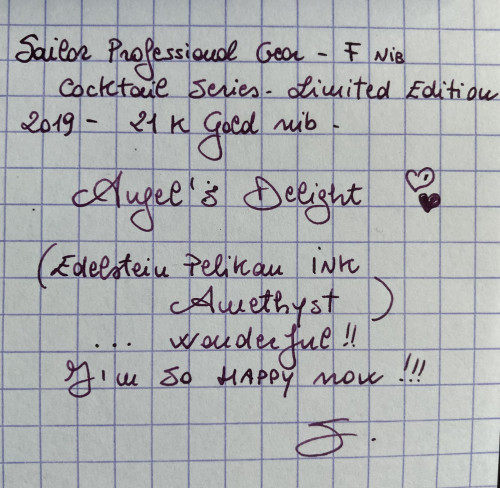 Sailor Professional Gear - F Nib
Cocktail Series - Limited Edition
2019 - 21 K Gold nib -
Angel's Delight
(Edelstein Pelikan INK
Amethyst)
... wonderful!!
I'm so HAPPY now!!!
F.